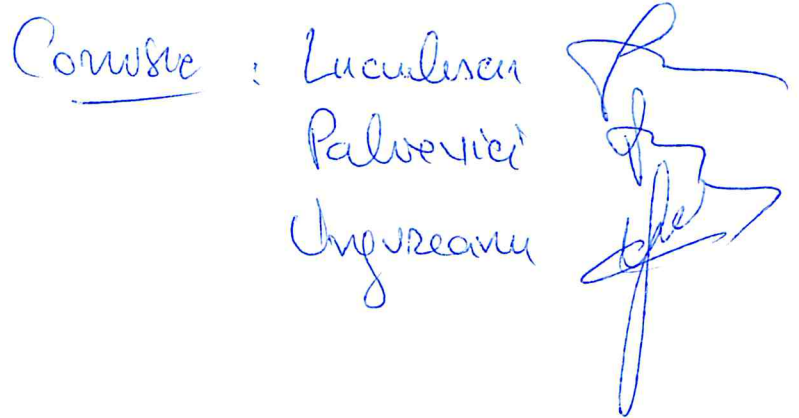 Comisie : Luculescu
Palievici
Ungureanu